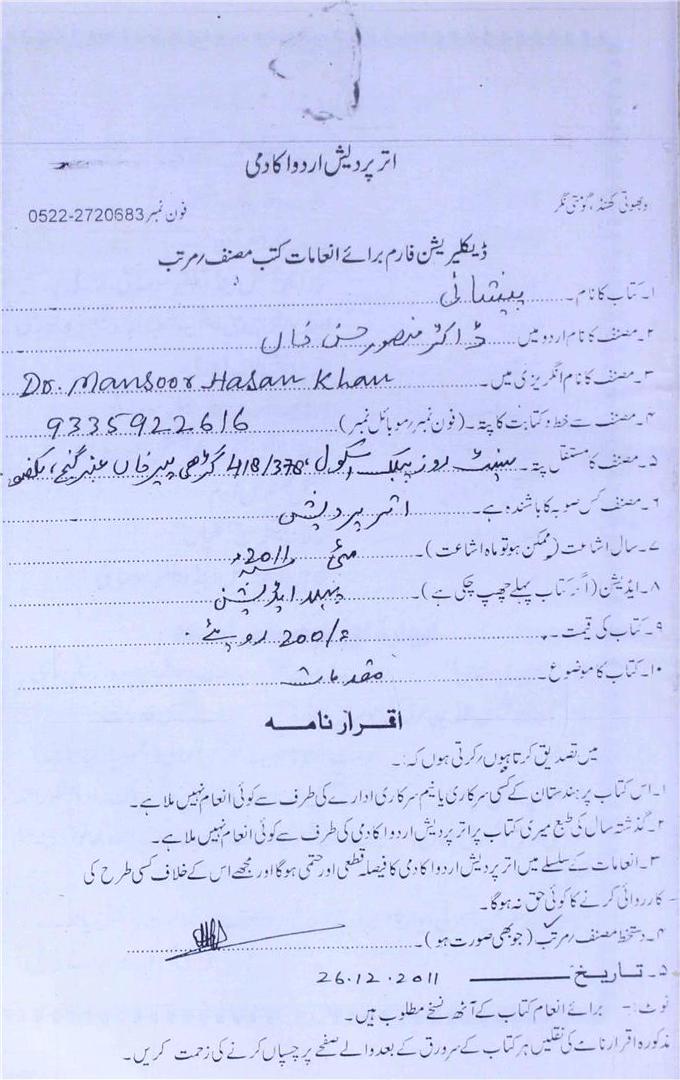 اتر پردیش اردو اکادمی
وبھوتی کھنڈ، گومتی نگر
فون نمبر 0522-2720683
ڈیکلیریشن فارم برائے انعامات کتب مصنف/مرتب
۱۔ کتاب کا نام۔ پیشانی
۲۔ مصنف کا نام اردو میں۔ ڈاکٹر منصور حسن خاں
۳۔ مصنف کا نام انگریزی میں۔ Dr. Mansoor Hasan Khan
۴۔ مصنف سے خط و کتابت کا پتہ۔ (فون نمبر/موبائل نمبر) 9335922616
۵۔ مصنف کا مستقل پتہ۔ سینٹ روز پبلک اسکول، 418/378 گڑھی پیر خاں عنبر گنج، لکھنؤ
۶۔ مصنف کس صوبہ کا باشندہ ہے۔ اتر پردیش
۷۔ سال اشاعت (ممکن ہو تو ماہ اشاعت)۔ مئی 2011ء
۸۔ ایڈیشن (اگر کتاب پہلے چھپ چکی ہے)۔ پہلا ایڈیشن
۹۔ کتاب کی قیمت۔ 200/= روپئے
۱۰۔ کتاب کا موضوع۔ مقدمات
اقرار نامہ
میں تصدیق کرتا ہوں/کرتی ہوں کہ:۔
۱۔ اس کتاب پر ہندستان کے کسی سرکاری یا نیم سرکاری ادارے کی طرف سے کوئی انعام نہیں ملا ہے۔
۲۔ گذشتہ سال کی طبع میری کتاب پر اتر پردیش اردو اکادمی کی طرف سے کوئی انعام نہیں ملا ہے۔
۳۔ انعامات کے سلسلے میں اتر پردیش اردو اکادمی کا فیصلہ قطعی اور حتمی ہوگا اور مجھے اس کے خلاف کسی طرح کی
کارروائی کرنے کا کوئی حق نہ ہوگا۔
۴۔ دستخط مصنف/مرتب (جو بھی صورت ہو)۔
۵۔ تاریخ 26.12.2011
نوٹ:۔ برائے انعام کتاب کے آٹھ نسخے مطلوب ہیں۔
مذکورہ اقرار نامے کی نقلیں ہر کتاب کے سرورق کے بعد والے صفحے پر چسپاں کرنے کی زحمت کریں۔